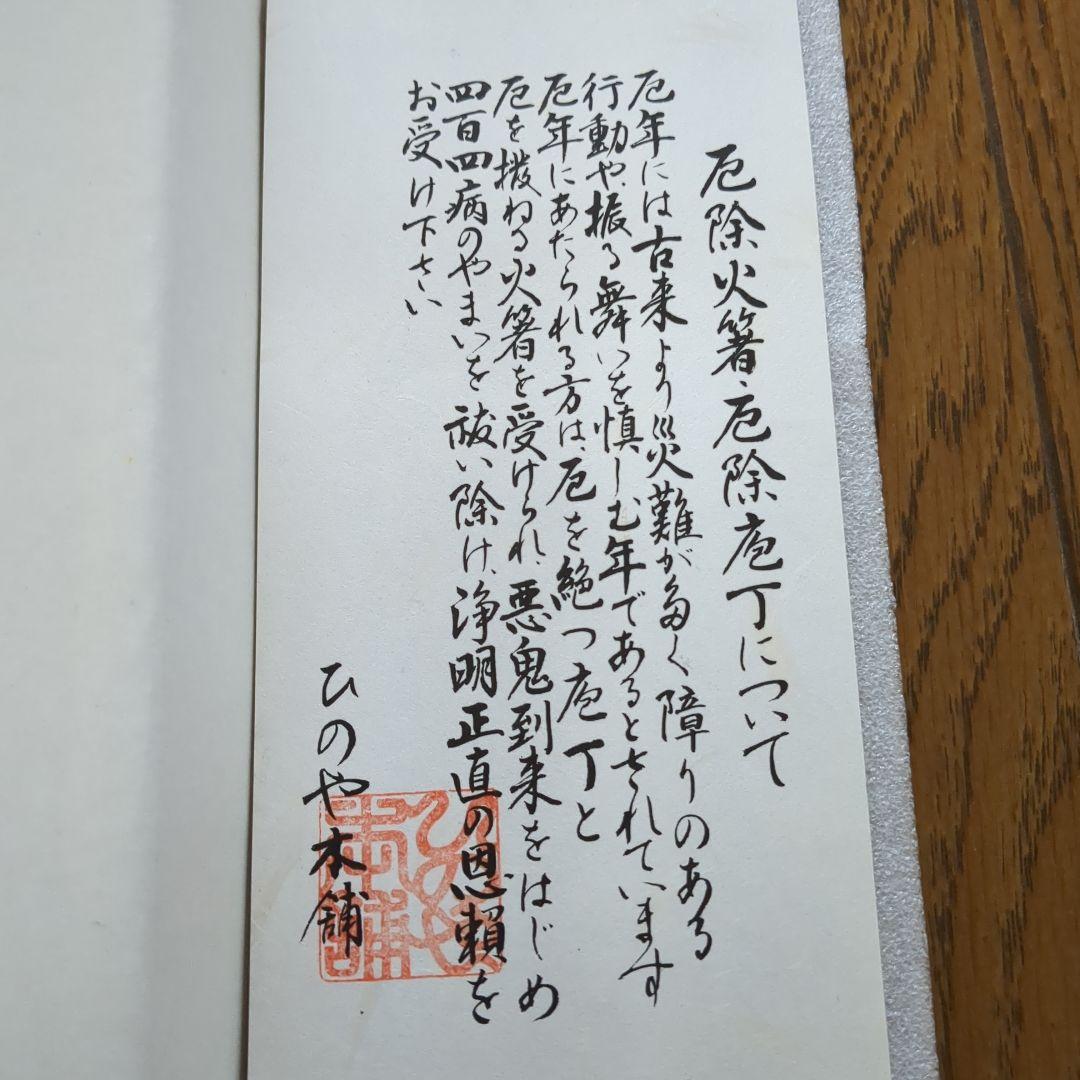 厄除火箸・厄除庖丁について
厄年には古来より災難が多く障りのある
行動や、振る舞いを慎しむ年であるとされています
厄年にあたられる方は、厄を絶つ庖丁と
厄を撥ねる火箸を受けられ、悪鬼到来をはじめ
四百四病のやまいを祓い除け、浄明正直の恩頼を
お受け下さい
ひのや本舗